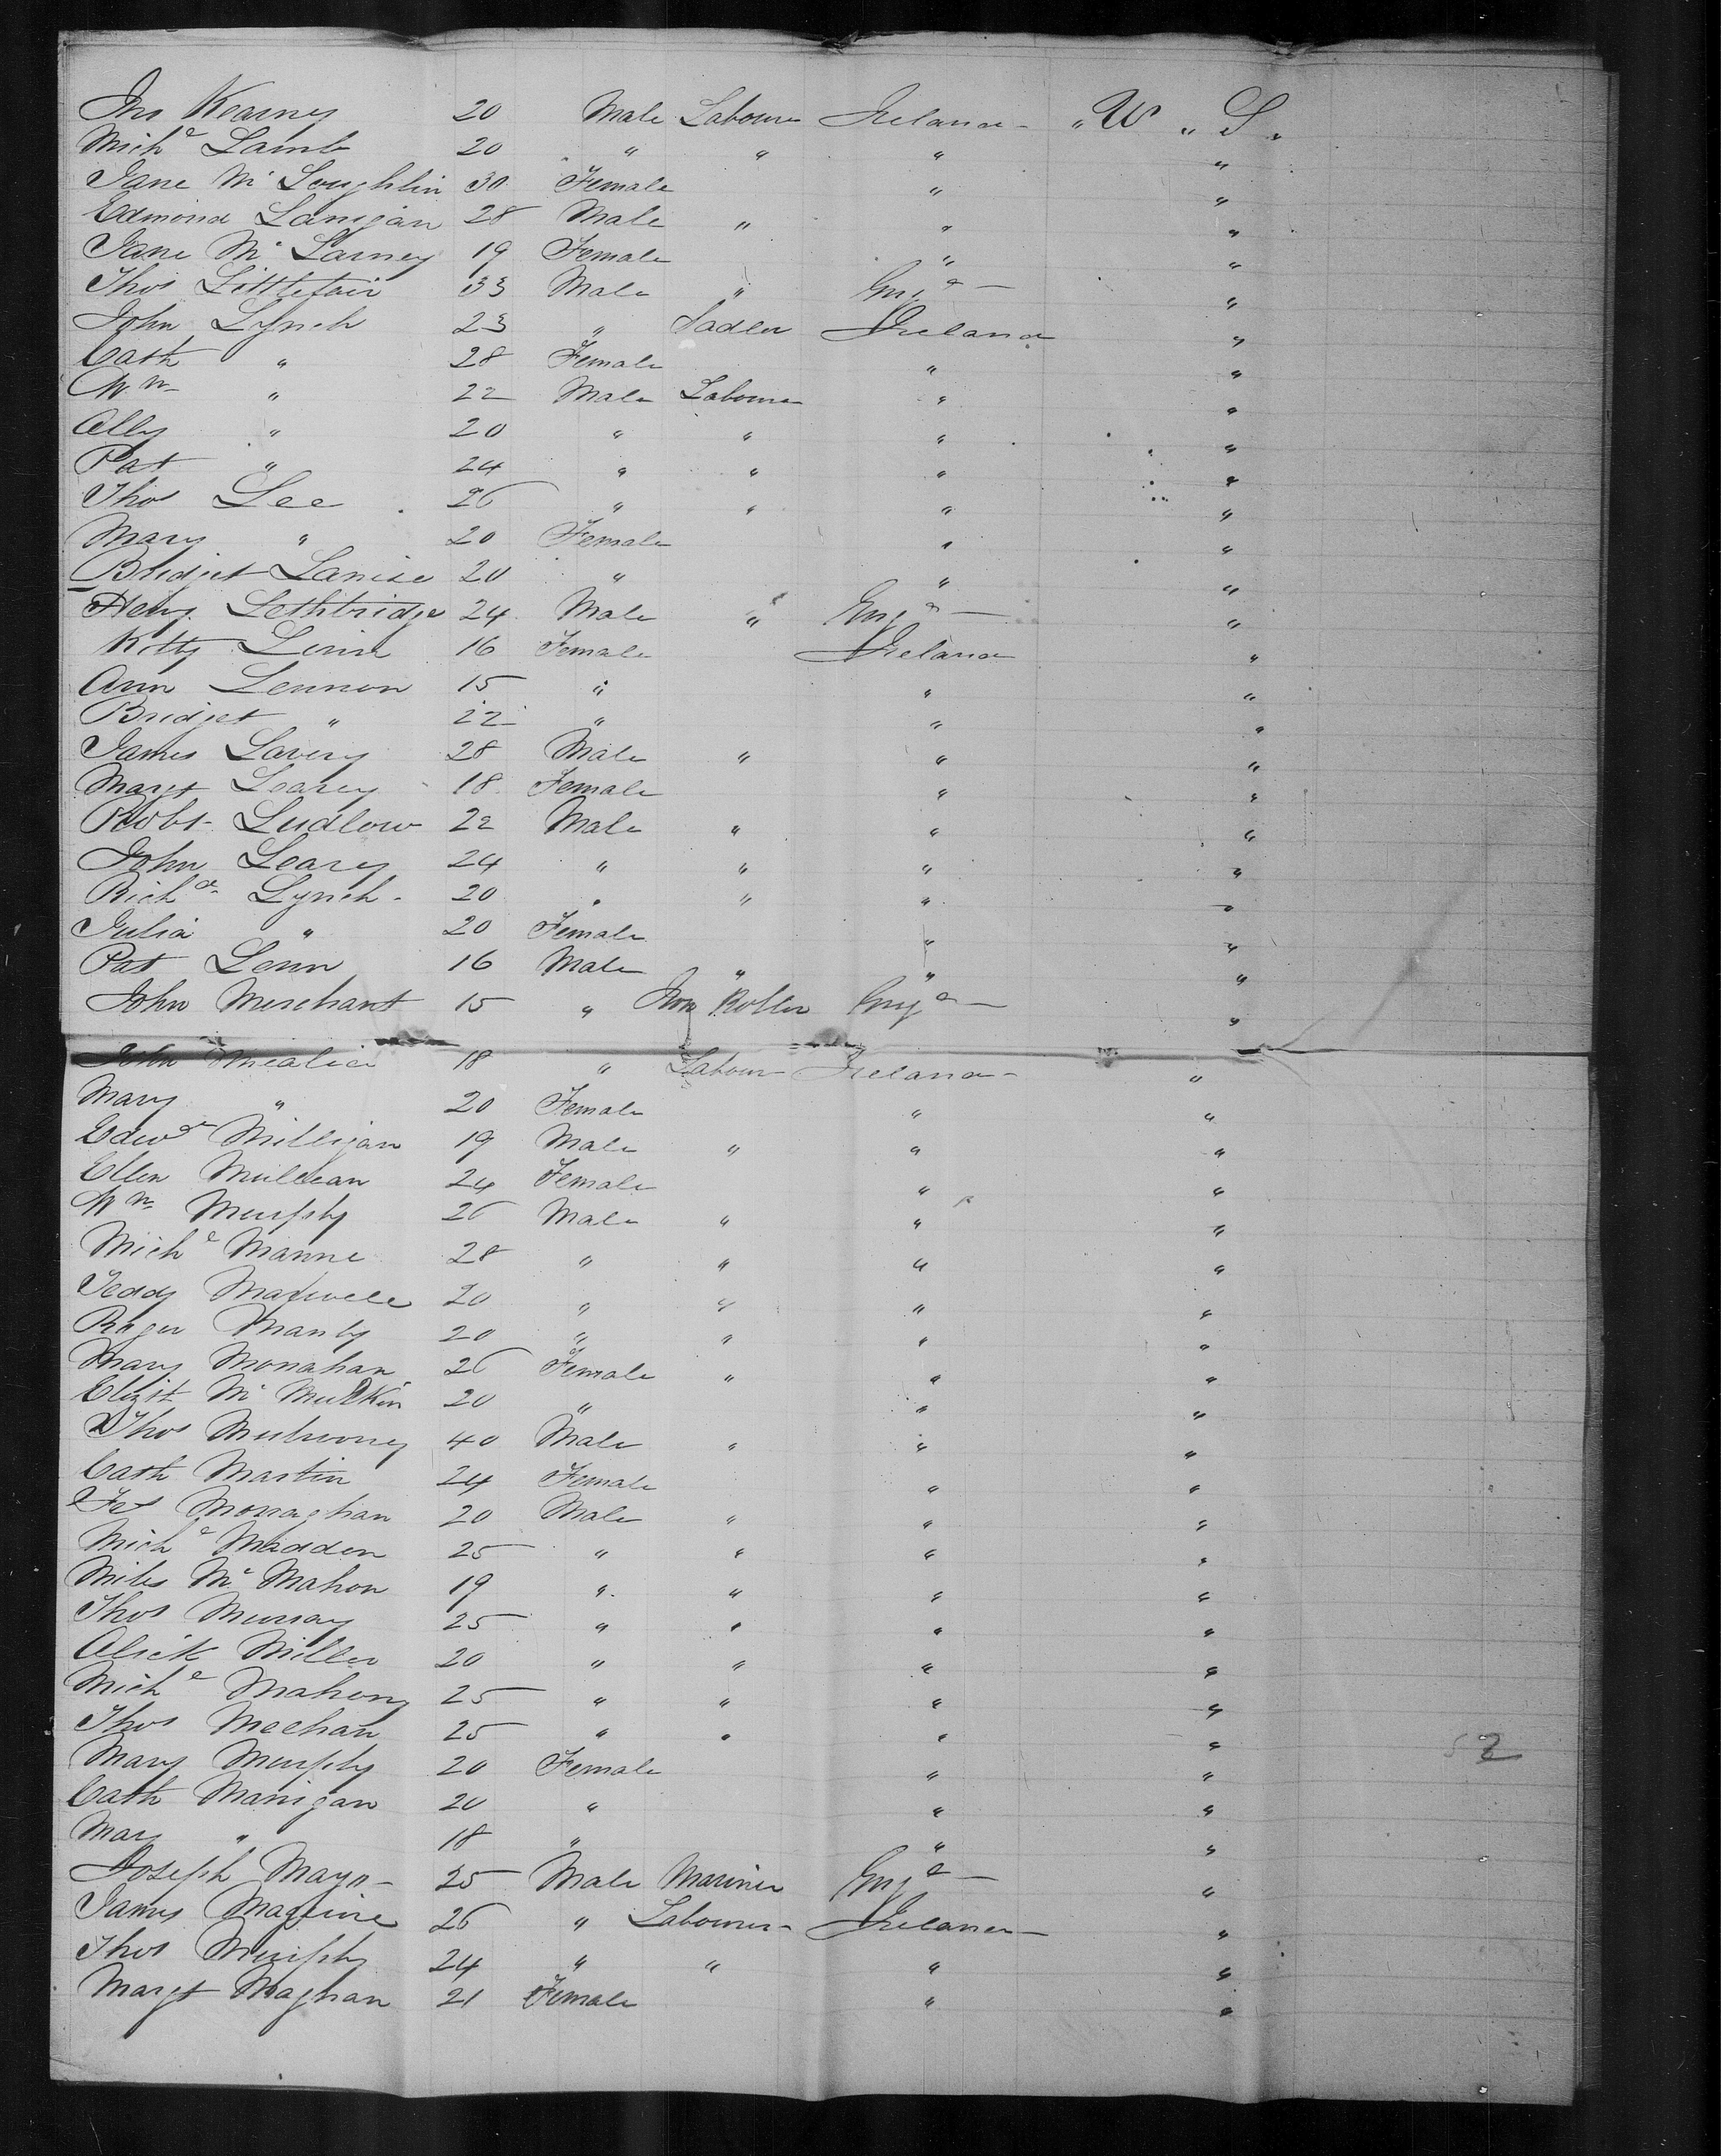 Jno Kearney 20 Male Labourer Ireland " U " S "
Michl Lamb 20 " " " "
Jane Mc Loughlin 30 Female " "
Edmond Lanigan 28 Male " " "
Jane Mc Larney 19 Female " "
Thos Littlefair 33 Male " Engd "
John Lynch 23 " Sadler Ireland "
Cath " 28 Female " "
Wm " 22 Male Labourer " "
Ally " 20 " " " "
Pat " 24 " " " "
Thos Lee 26 " " " "
Mary " 20 Female " "
Bridget 20 " " "
Heny. Lethbridge 24 Male " Engd "
Kitty 16 Female Ireland "
Ann Lennon 15 " " "
Bridget " 22 " " "
James Lavery 28 Male " " "
Margt Leary 18 Female " "
Robt Ludlow 22 Male " " "
John Leary 24 " " " "
Richd Lynch 20 " " " "
Julia " 20 Female " "
Pat Lenn 16 Male " " "
John Merchant 15 " Iron Roller Engd "
John Mealia 18 " Labour Ireland "
Mary " 20 Female " "
Edwd Milligan 19 Male " " "
Ellen Mullean 24 Female " "
Wm Murphy 26 Male " " "
Michl Manne 28 " " " "
Teddy Maxwell 20 " " " "
Roger Manly 20 " " " "
Mary Monahan 26 Female " " "
Elizt Mc 20 " " "
Thos Mulrooney 40 Male " " "
Cath Martin 24 Female " "
Fs Monaghan 20 Male " " "
Michl Madden 25 " " " "
Miles Mc Mahon 19 " " " "
Thos Murray 25 " " " "
Alick Miller 20 " " " "
Michl Mahony 25 " " " "
Thos Meehan 25 " " " "
Mary Murphy 20 Female " "
Cath Manigan 20 " " "
Mary " 18 " " "
Joseph Mayo 25 Male Mariner Engd "
James Maguire 26 " Labourer Ireland "
Thos Murphy 24 " " " "
Margt Maghan 21 Female " "
52